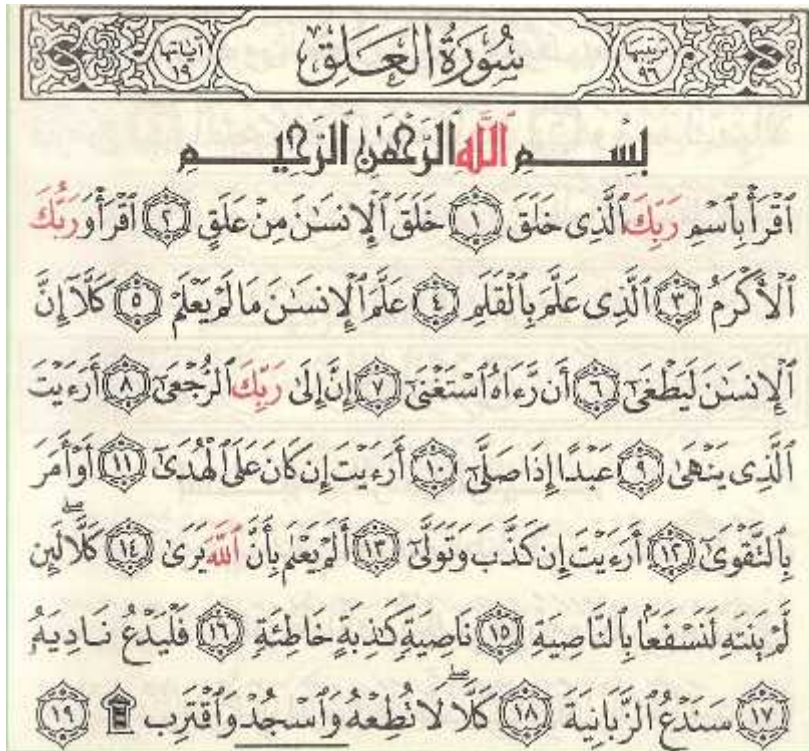 ترتيبها ٩٦ سُورَةُ العَلَقِ آياتها ١٩
بِسْمِ اللَّهِ الرَّحْمَٰنِ الرَّحِيمِ
ٱقْرَأْ بِٱسْمِ رَبِّكَ ٱلَّذِى خَلَقَ ١ خَلَقَ ٱلْإِنسَٰنَ مِنْ عَلَقٍ ٢ ٱقْرَأْ وَرَبُّكَ
ٱلْأَكْرَمُ ٣ ٱلَّذِى عَلَّمَ بِٱلْقَلَمِ ٤ عَلَّمَ ٱلْإِنسَٰنَ مَا لَمْ يَعْلَمْ ٥ كَلَّآ إِنَّ
ٱلْإِنسَٰنَ لَيَطْغَىٰٓ ٦ أَن رَّءَاهُ ٱسْتَغْنَىٰٓ ٧ إِنَّ إِلَىٰ رَبِّكَ ٱلرُّجْعَىٰٓ ٨ أَرَءَيْتَ
ٱلَّذِى يَنْهَىٰ ٩ عَبْدًا إِذَا صَلَّىٰٓ ١٠ أَرَءَيْتَ إِن كَانَ عَلَى ٱلْهُدَىٰٓ ١١ أَوْ أَمَرَ
بِٱلتَّقْوَىٰٓ ١٢ أَرَءَيْتَ إِن كَذَّبَ وَتَوَلَّىٰٓ ١٣ أَلَمْ يَعْلَم بِأَنَّ ٱللَّهَ يَرَىٰ ١٤ كَلَّا لَئِن
لَّمْ يَنتَهِ لَنَسْفَعًۢا بِٱلنَّاصِيَةِ ١٥ نَاصِيَةٍ كَٰذِبَةٍ خَاطِئَةٍ ١٦ فَلْيَدْعُ نَادِيَهُۥ
١٧ سَنَدْعُ ٱلزَّبَانِيَةَ ١٨ كَلَّا لَا تُطِعْهُ وَٱسْجُدْ وَٱقْتَرِب ۩ ١٩